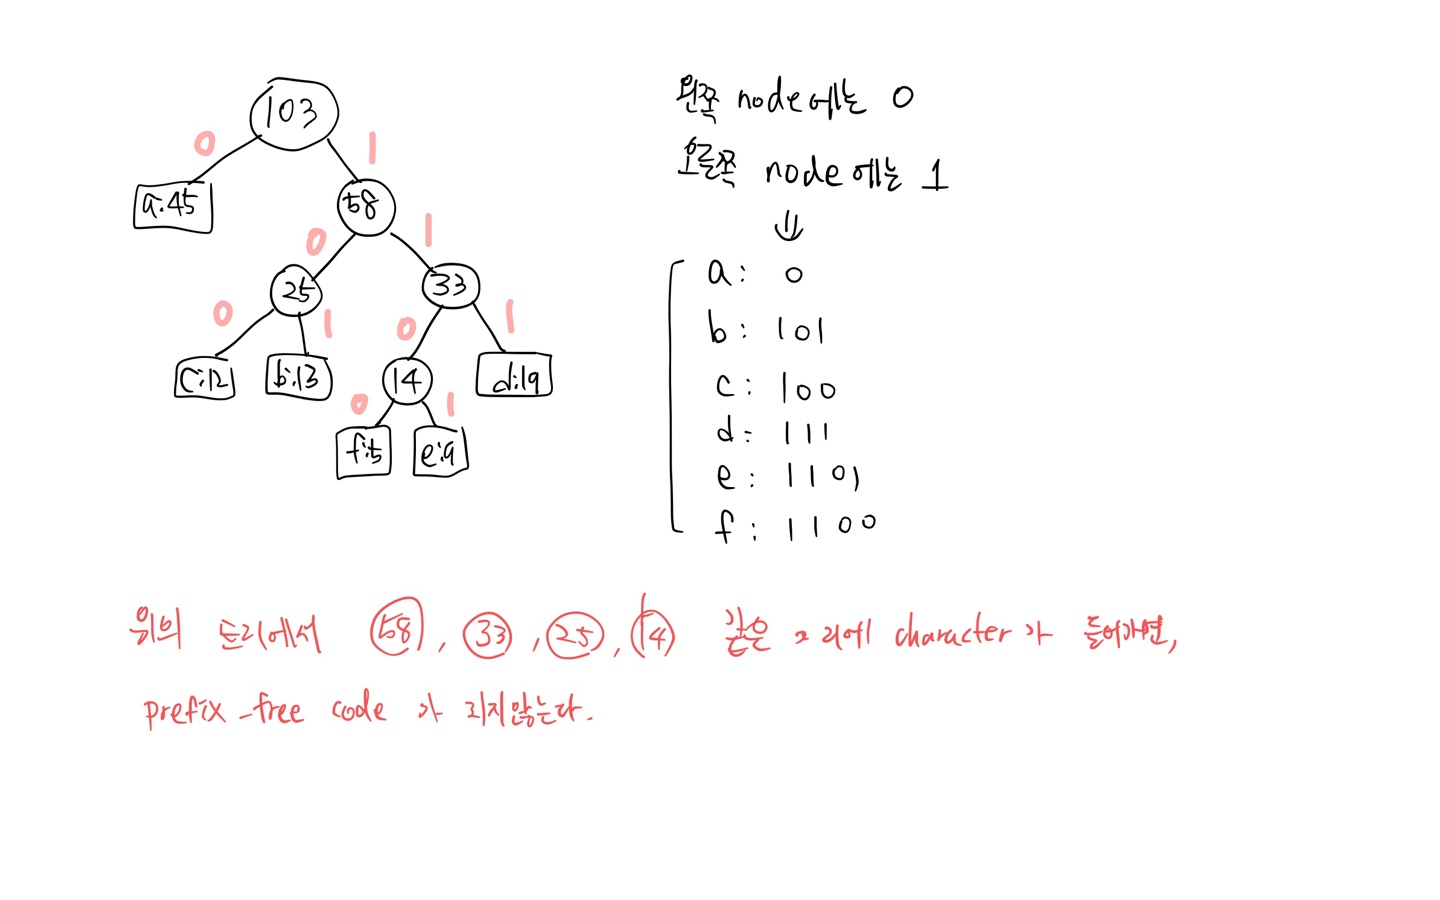 103
0 1
a:45 58
0 1
25 33
0 1 0 1
c:12 b:13 14 d:19
0 1
f:5 e:9
왼쪽 node에는 0
오른쪽 node에는 1
⇓
a: 0
b: 101
c: 100
d: 111
e: 1101
f: 1100
위의 트리에서 58, 33, 25, 14 같은 고리에 character가 들어가면,
prefix-free code가 되지않는다.